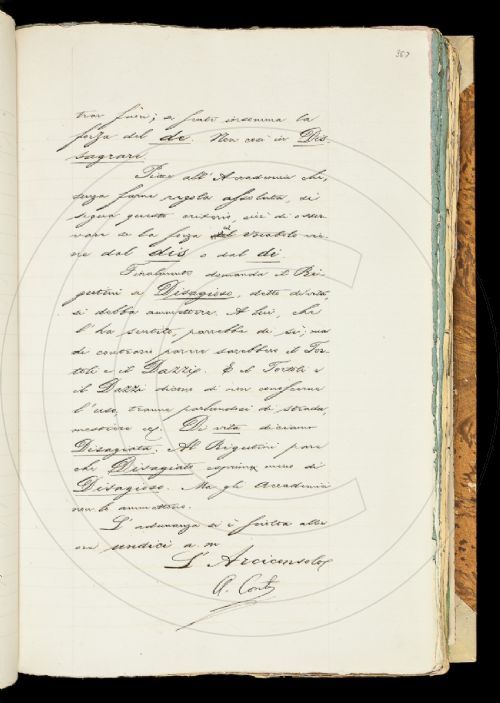 367
trar fuori; a farti insomma la
forza del de. Non così in Dis-
sagrare.
Piace all'Accademia che,
senza farne regola assoluta, si
segua questo criterio, cioè di osser-
vare se la forza del vocabolo vie-
ne dal dis o dal di.
Finalmente domanda il Ri-
gutini se Disagioso, detto di vita,
si debba ammettere. A lui, che
l'ha sentito, parrebbe di sì; ma
di contrario parere sarebbero il Tor-
toli e il Dazzi. E il Tortoli e
il Dazzi dicono di non conoscerne
l'uso, tranne parlandosi di strada,
mestiere ec. Di vita diciamo
Disagiata. Al Rigutini pare
che Disagiato esprima meno di
Disagioso. Ma gli Accademici
non lo ammettono.
L'adunanza si è sciolta alle
ore undici a. m.
L'Arciconsolo
A. Conti